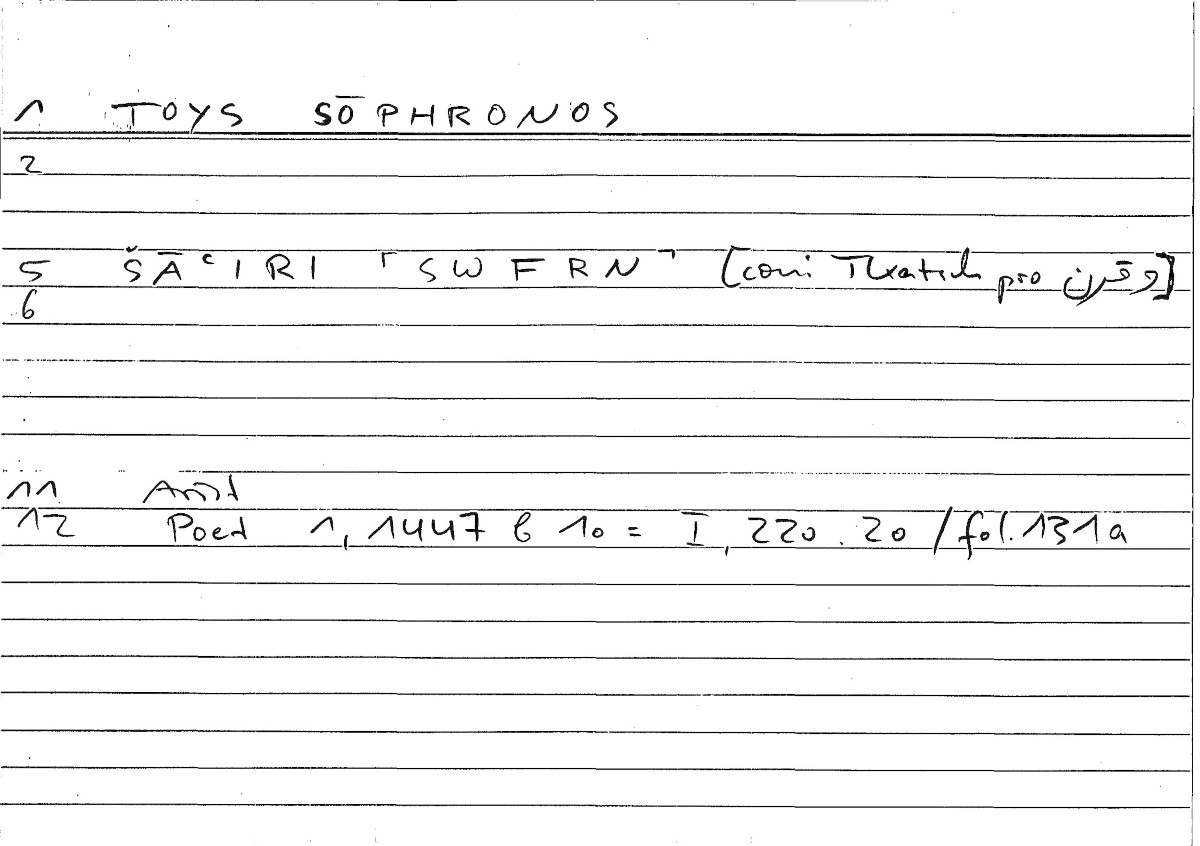 1 TOYS SŌPHRONOS
2
5 ŠĀʿIRI ⌜SWFRN⌝ [coni Tkatsch pro وفرن]
6
11 Arist
12 Poet 1, 1447 b 10 = I, 220.20 / fol. 131a